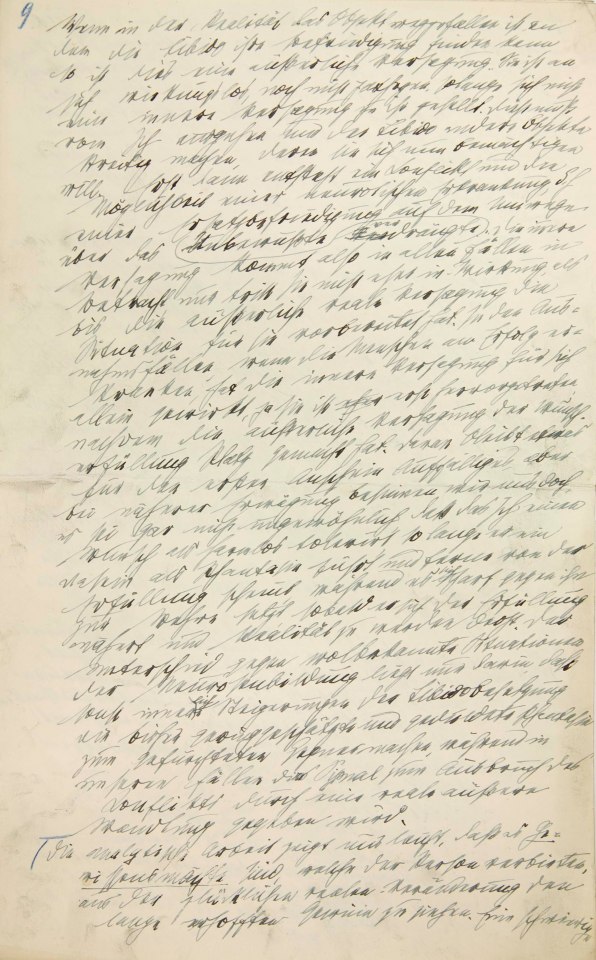 9
Wenn in der Realität das Objekt weggefallen ist an
dem die Libido ihre Befriedigung finden kann
so ist dies eine äußerliche Versagung. Sie ist an
sich wirkungslos, noch nicht pathogen, solange sich nicht
eine innere Versagung zu ihr gesellt. Diese muß
vom Ich ausgehen und der Libido andere Objekte
streitig machen, deren sie sich nun bemächtigen
will. Erst dann entsteht ein Conflikt und die
Möglichkeit einer neurotischen Erkrankung dh
einer Ersatzbefriedigung auf dem Umwege
über das Unbewußte verdrängte. Die innere
Versagung kommt also in allen Fällen in
Betracht nur tritt sie nicht eher in Wirkung als
bis die äußerliche reale Versagung die
Situation für sie vorbereitet hat. In den Aus-
nahmsfällen, wenn die Menschen am Erfolg er-
kranken, hat die innere Versagung für sich
allein gewirkt, ja sie ist erst hervorgetreten
nachdem die äußerliche Versagung der Wunsch-
erfüllung Platz gemacht hat. Daran bleibt etwas
für den ersten Anschein Auffälliges, aber
bei näherer Erwägung besinnen wir uns doch,
es sei gar nicht ungewöhnlich daß das Ich einen
Wunsch als harmlos tolerirt so lange er ein
Dasein als Phantasie führt und ferne von der
Erfüllung scheint während es sich scharf gegen ihn
zur Wehre setzt sobald er sich der Erfüllung
nähert und Realität zu werden droht. Der
Unterschied gegen wolbekannte Situationen
der Neurosenbildung liegt nur darin daß
sonst innere Steigerungen der Libidobesetzung
die bisher geringgeschätzte und geduldete Phantasie
zum gefürchteten Gegner machen, während in
unseren Fällen das Signal zum Ausbruch des
Conflikts durch eine reale äußere
Wandlung gegeben wird.
Die analytische Arbeit zeigt uns leicht, daß es Ge-
wissensmächte sind, welche der Person verbieten,
aus der glücklichen realen Veränderung den
lange erhofften Gewinn zu ziehen. Eine schwierige